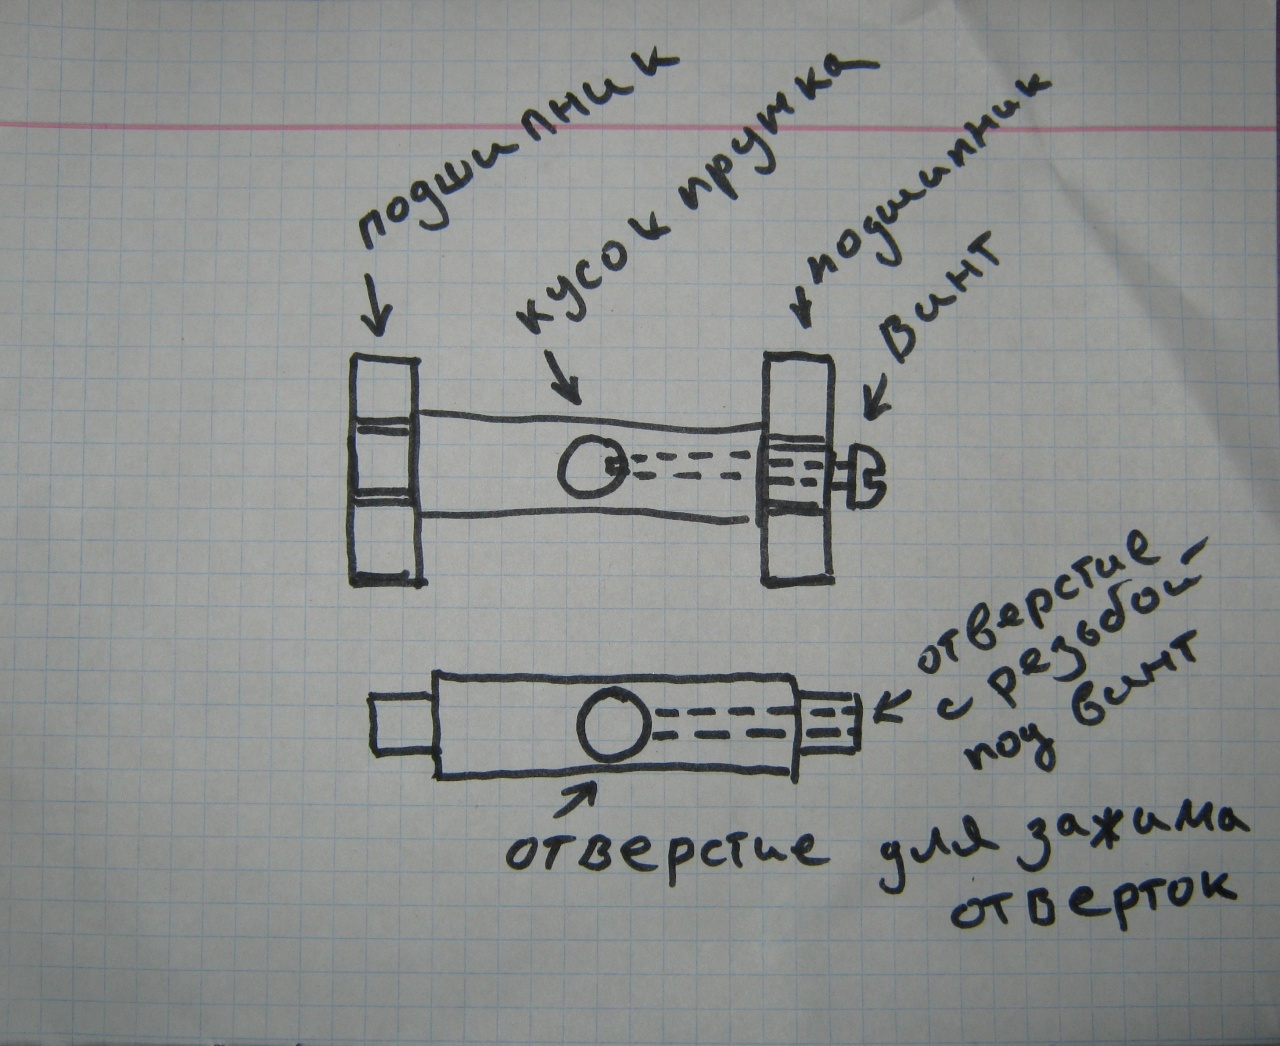 подшипник
кусок прутка
подшипник
винт
отверстие
с резьбой
под винт
отверстие для зажима
отверток